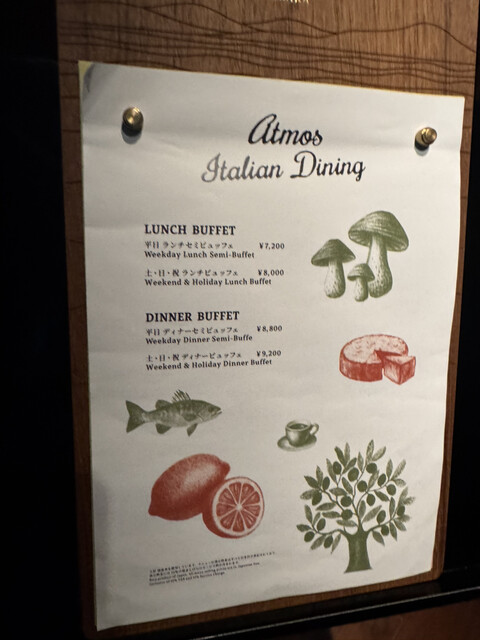 Atmos
Italian Dining
LUNCH BUFFET
平日 ランチセミビュッフェ ¥7,200
Weekday Lunch Semi-Buffet
土・日・祝 ランチビュッフェ ¥8,000
Weekend & Holiday Lunch Buffet
DINNER BUFFET
平日 ディナーセミビュッフェ ¥8,800
Weekday Dinner Semi-Buffe
土・日・祝 ディナービュッフェ ¥9,200
Weekend & Holiday Dinner Buffet